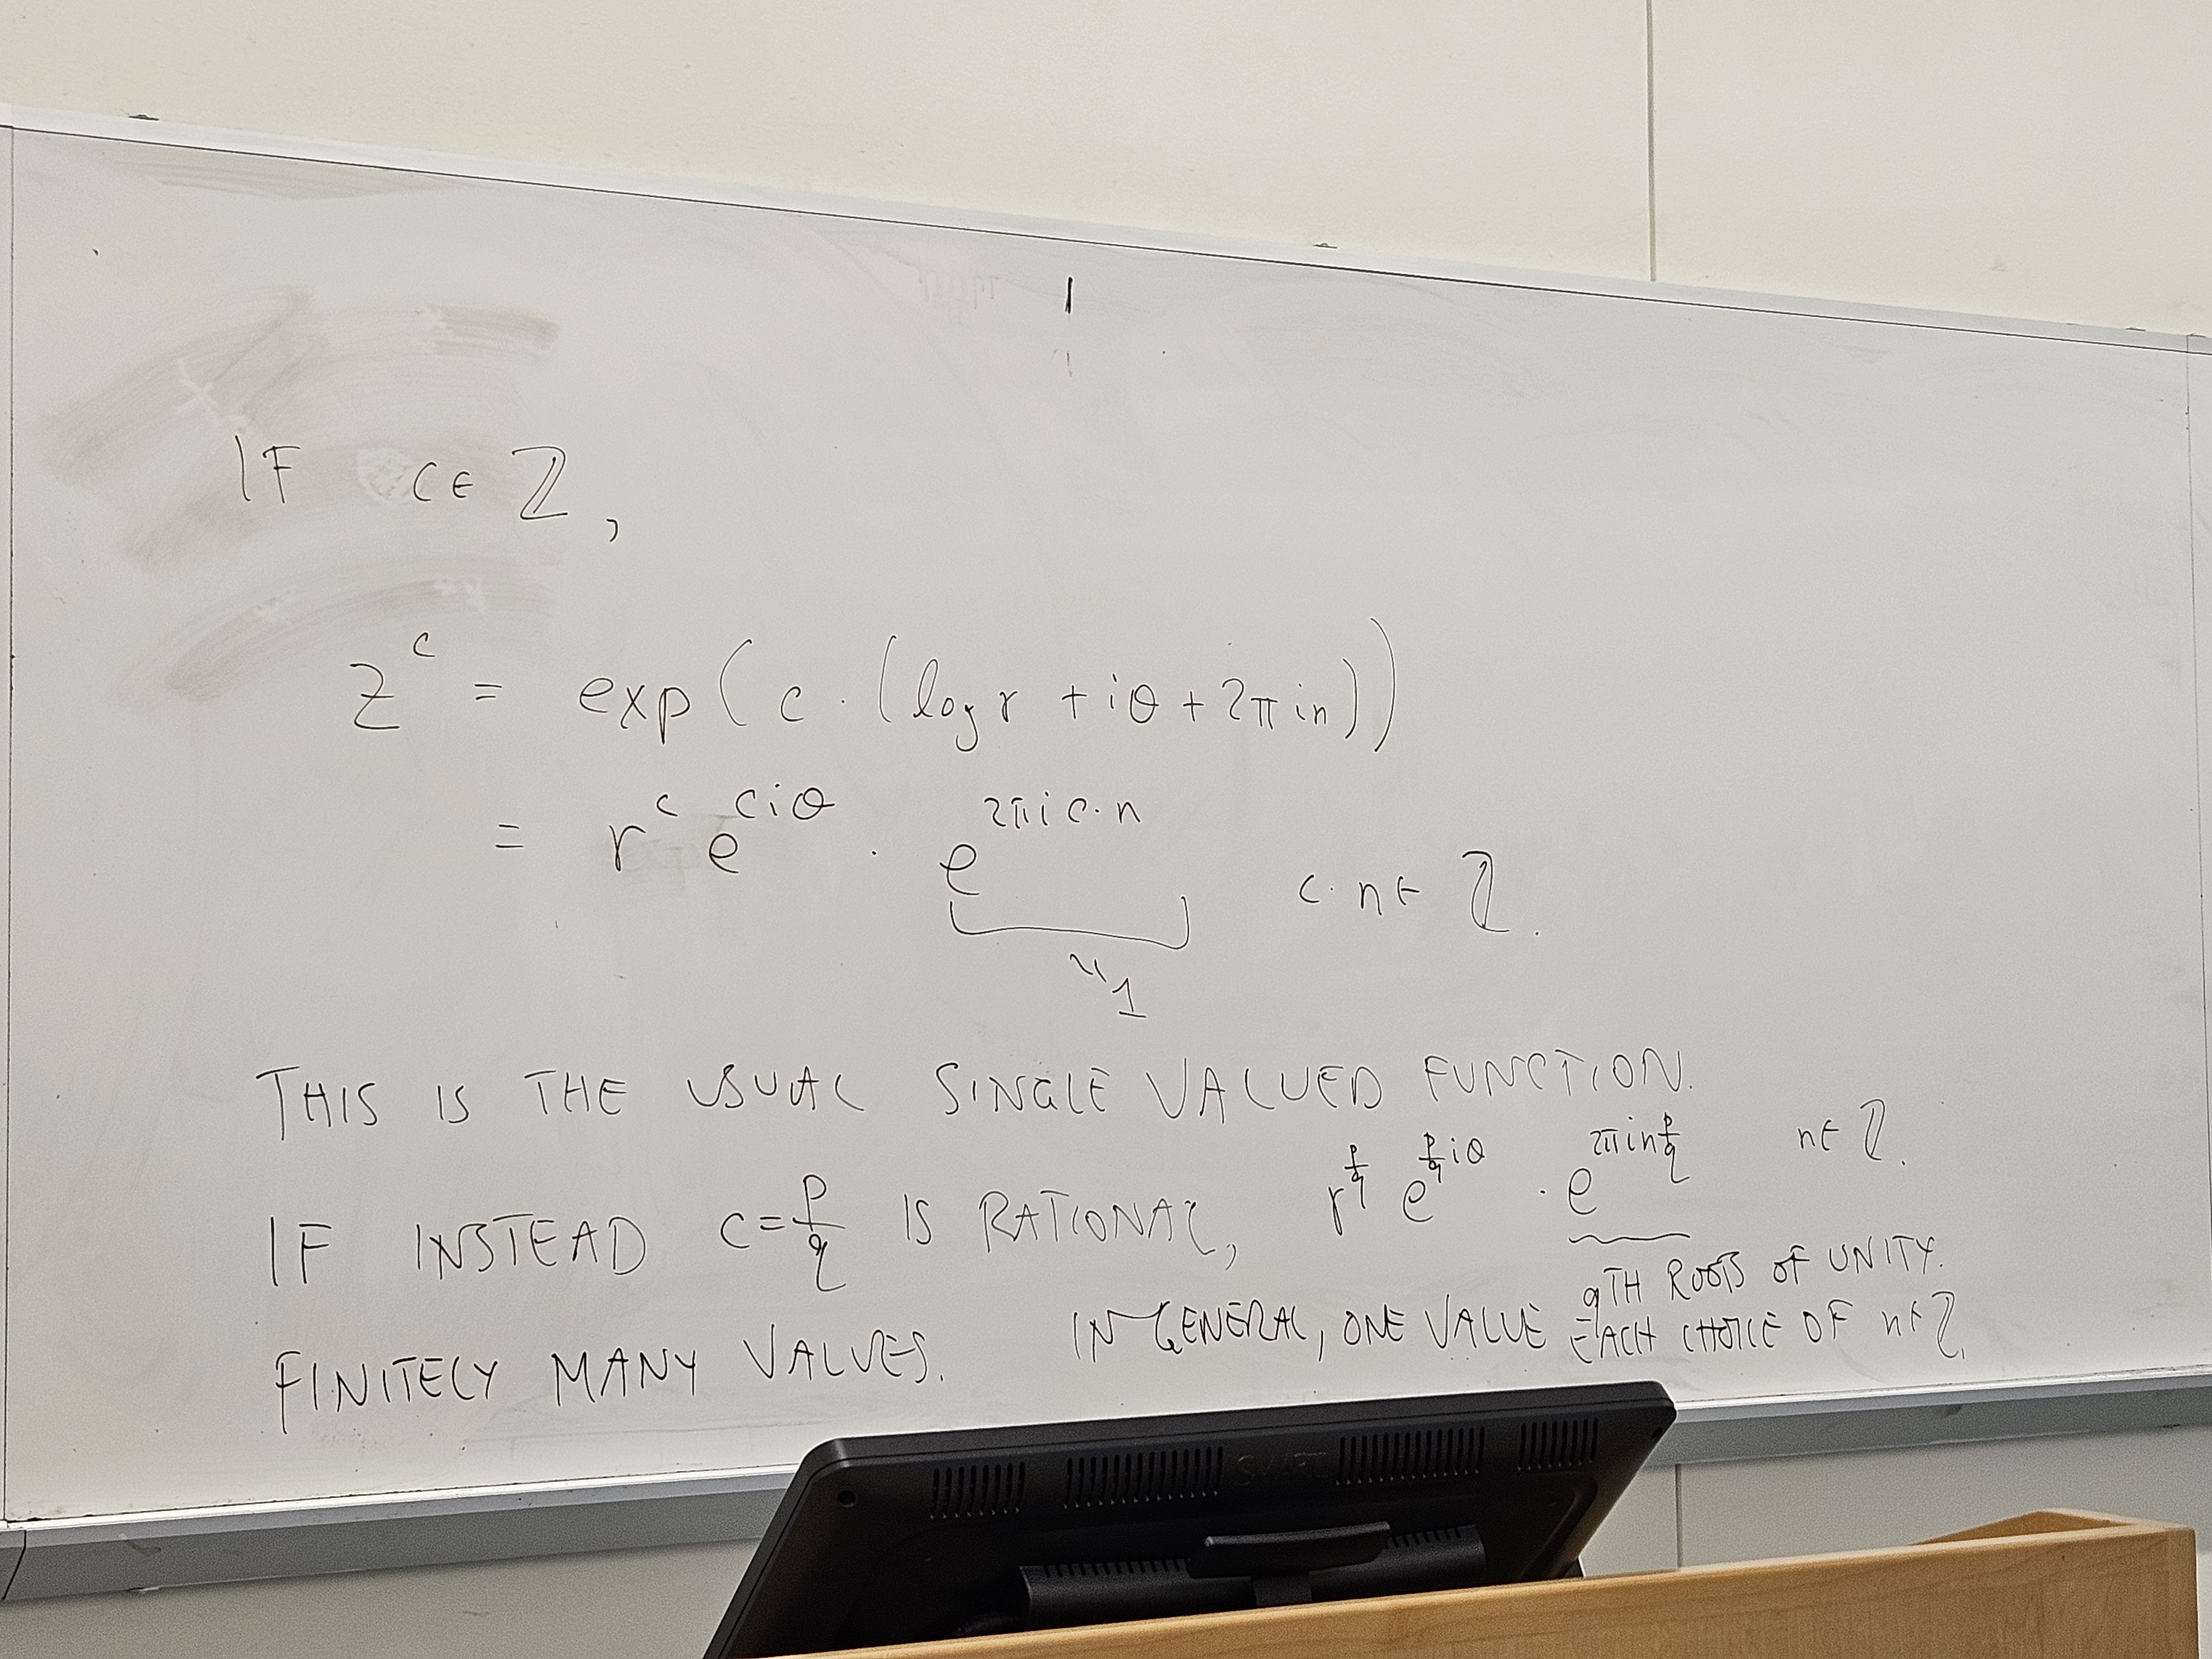 IF C ∈ ℤ,
z^c = exp(c · (log r + iθ + 2πin))
= r^c e^{ciθ} · e^{2πi c·n} c·n ∈ ℤ.
" 1
THIS IS THE USUAL SINGLE VALUED FUNCTION.
IF INSTEAD c = p/q IS RATIONAL, r^{p/q} e^{p/q iθ} · e^{2πin p/q} n ∈ ℤ.
qTH ROOTS OF UNITY.
FINITELY MANY VALUES. IN GENERAL, ONE VALUE EACH CHOICE OF n ∈ ℤ.
SMART